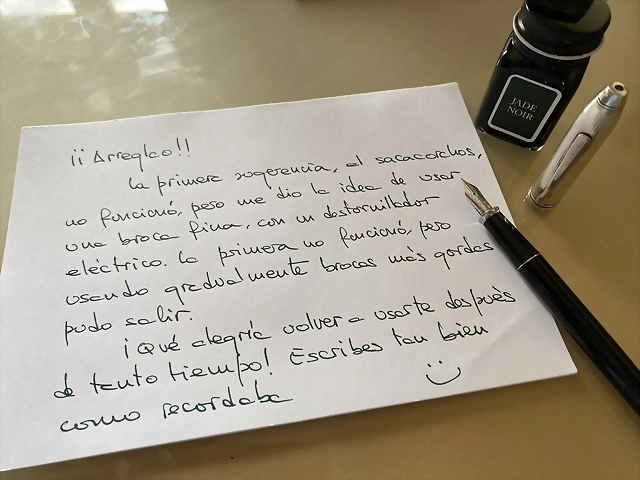 JADE
NOIR
¡¡Arreglao!!
La primera sugerencia, el sacacorchos,
no funcionó, pero me dio la idea de usar
una broca fina, con un destornillador
eléctrico. La primera no funcionó, pero
usando gradualmente brocas más gordas
pudo salir.
¡Qué alegría volver a usarte después
de tanto tiempo! Escribes tan bien
como recordaba